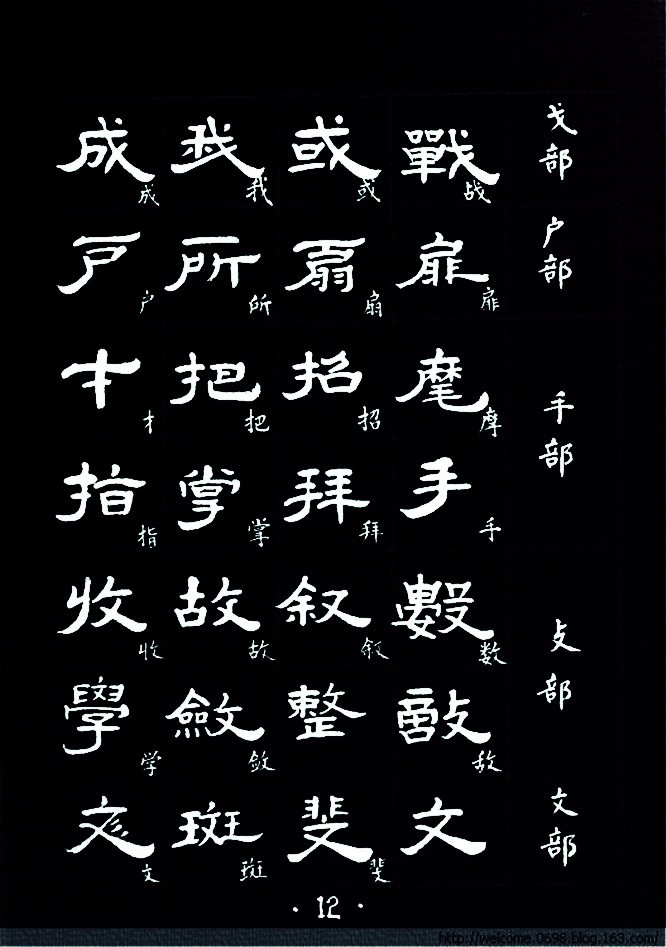 戈部
户部
手部
攴部
文部
戰 战 或 或 我 我 成 成
扉 扉 扇 扇 所 所 戶 户
摩 摩 招 招 把 把 才 才
手 手 拜 拜 掌 掌 指 指
數 数 敘 叙 故 故 收 收
敵 敌 整 斂 敛 學 学
文 斐 斐 斑 斑 文
· 12 ·
http://welcome.0698.blog.163.com/